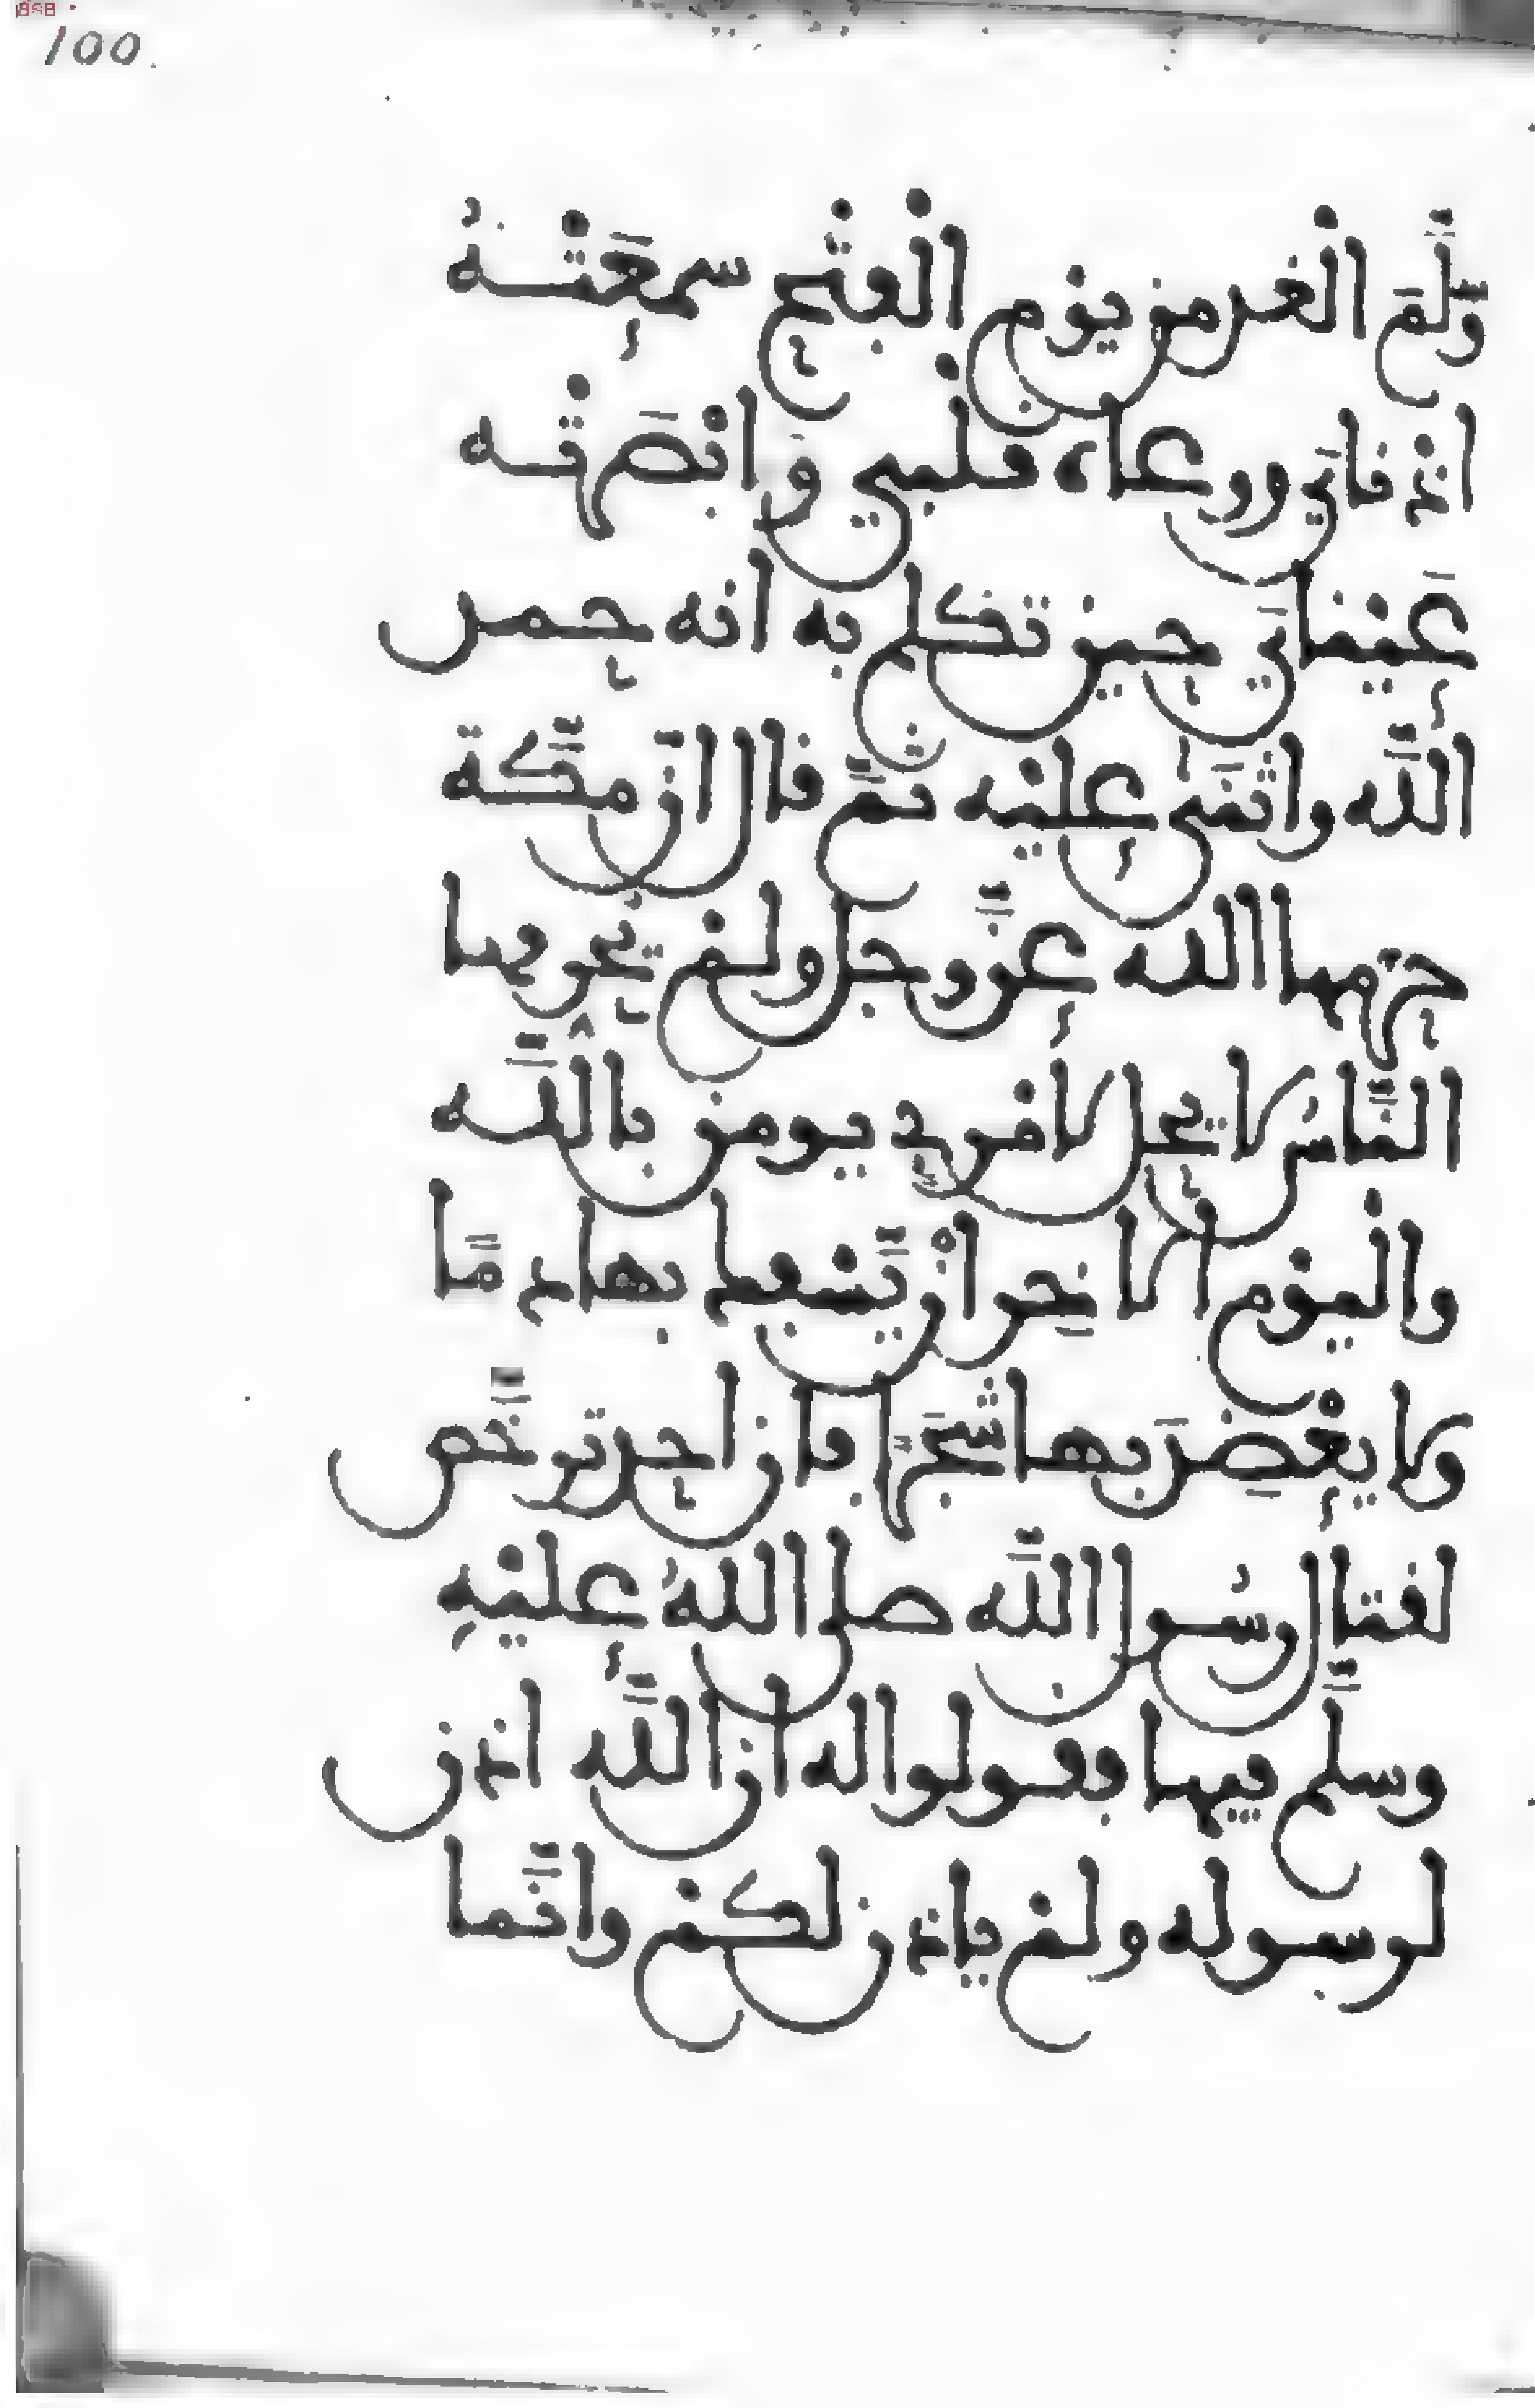 100.
وَسَلَّمَ الْغد من يوْم الْفتْح سمعَتْهُ
اذنايَ ووعاه قلْبي وَابْصَرتْه
عَيْنايَ حين تكلم به انه حمد
اللَّه واثْنَى عليْه ثمَّ قال انَّ مكَّة
حرمها الله عزَّ وجل ولمْ يحرمها
النَّاسُ لا يحل لامْرِيٍ يومن باللَّه
والْيوْم الاخِر انْ يَّسْفِك بها دمًا
ولا يعْضِدَ بها شَجَرةً فان احد ترخَّص
لقتال رسُول اللَّه صلى اللهُ عليْهِ
وسلَّم فيها فقولوا له ان اللَّه اذن
لرسوله ولمْ ياذن لكمْ وانَّما